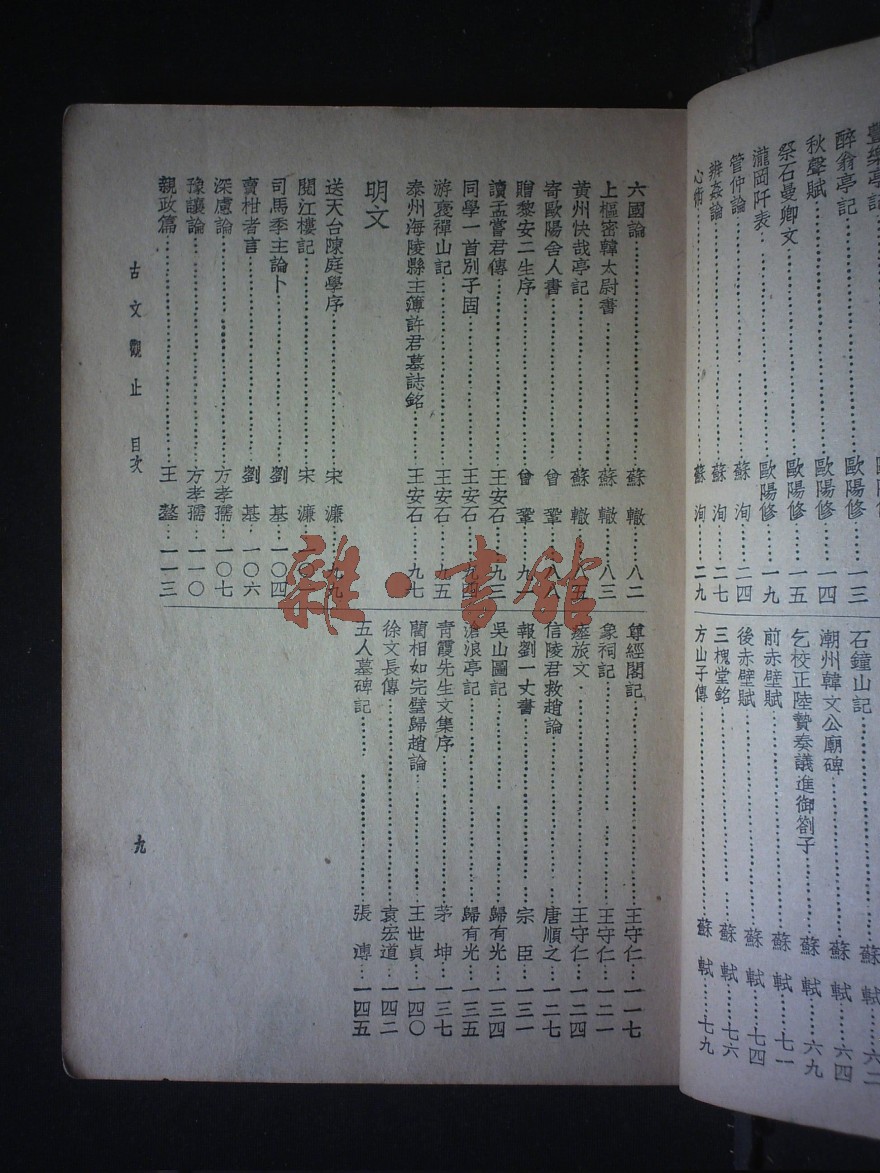 豐樂亭記
醉翁亭記……歐陽修……一三
秋聲賦……歐陽修……一四
祭石曼卿文……歐陽修……一五
瀧岡阡表……歐陽修……一九
管仲論……蘇洵……二四
辨姦論……蘇洵……二七
心術……蘇洵……二九
石鐘山記……蘇軾……六二
潮州韓文公廟碑……蘇軾……六四
乞校正陸贄奏議進御劄子……蘇軾……六九
前赤壁賦……蘇軾……七一
後赤壁賦……蘇軾……七四
三槐堂銘……蘇軾……七六
方山子傳……蘇軾……七九
六國論……蘇轍……八二
上樞密韓太尉書……蘇轍……八三
黃州快哉亭記……蘇轍……八五
寄歐陽舍人書……曾鞏……八八
贈黎安二生序……曾鞏……九一
讀孟嘗君傳……王安石……九三
同學一首別子固……王安石……九四
游褒禪山記……王安石……九五
泰州海陵縣主簿許君墓誌銘……王安石……九七
明文
送天台陳庭學序……宋濂……九九
閱江樓記……宋濂
司馬季主論卜……劉基……一〇四
賣柑者言……劉基……一〇六
深慮論……方孝孺……一〇七
豫讓論……方孝孺……一一〇
親政篇……王鏊……一一三
尊經閣記……王守仁……一一七
象祠記……王守仁……一二一
瘞旅文……王守仁……一二四
信陵君救趙論……唐順之……一二七
報劉一丈書……宗臣……一三一
吳山圖記……歸有光……一三四
滄浪亭記……歸有光……一三五
青霞先生文集序……茅坤……一三七
藺相如完璧歸趙論……王世貞……一四〇
徐文長傳……袁宏道……一四二
五人墓碑記……張溥……一四五
古文觀止 目次
九
雜·書館